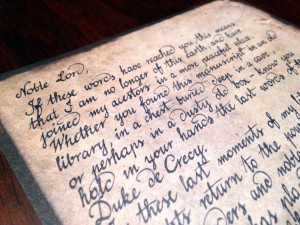 Noble Lord,
If these words have reached you this means
that I am no longer of this Earth, and have
joined my acestors in a more peaceful place.
Whether you found this manuscript in an old
library in a chest buried deep in a cave
or perhaps in a Dusty old box know you
hold in your hands the last words of the
Duke de Crecy.
these last moments of my
return to the
and